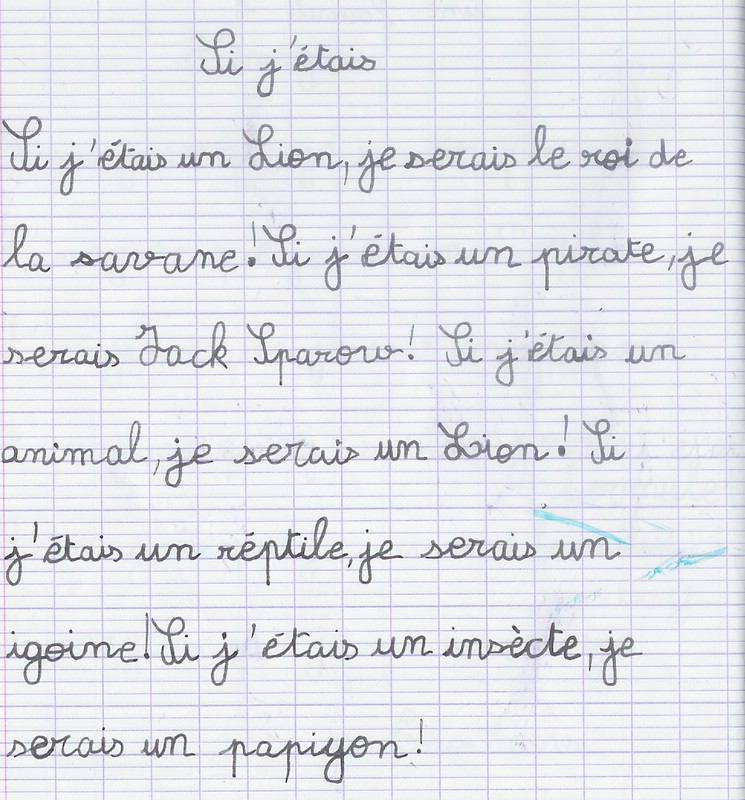 Si j'étais
Si j'étais un Lion, je serais le roi de
la savane! Si j'étais un pirate, je
serais Jack Sparow! Si j'étais un
animal, je serais un Lion! Si
j'étais un réptile, je serais un
igoine! Si j'étais un insècte, je
serais un papiyon!